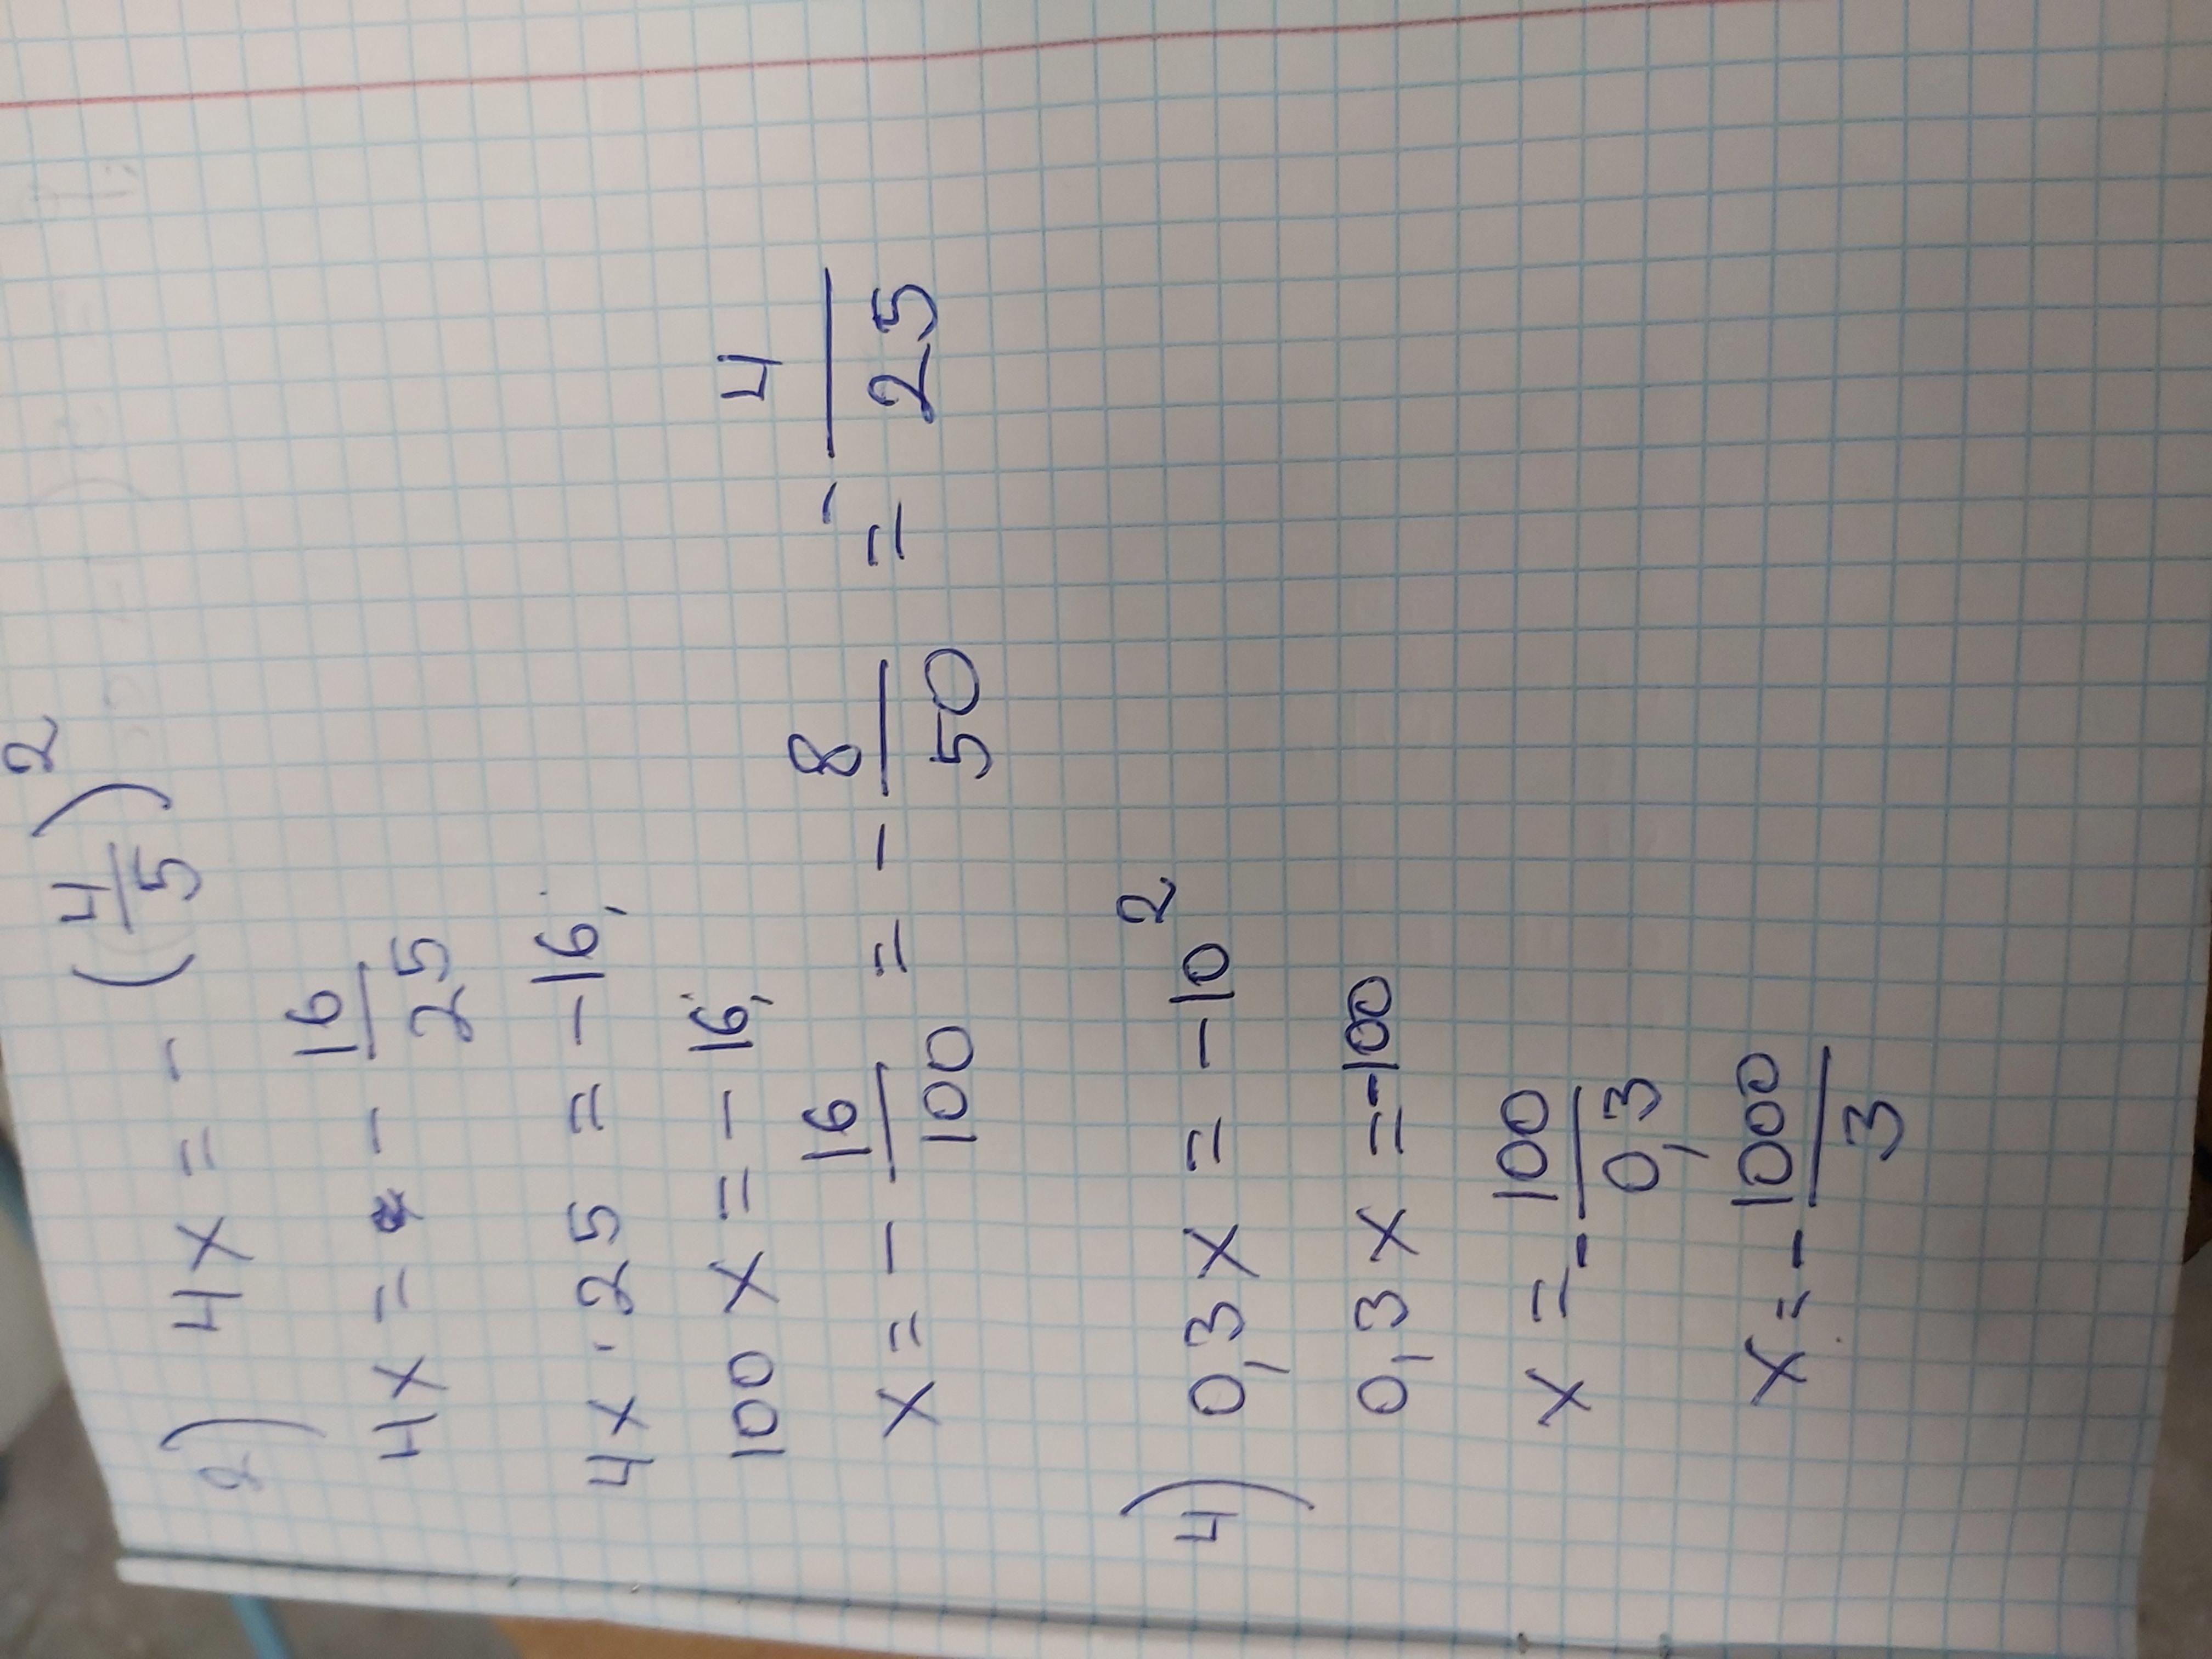 2) 4x = - (4/5)²
4x = - 16/25
4x · 25 = -16;
100 x = - 16;
x = - 16/100 = - 8/50 = - 4/25
4) 0,3x = -10²
0,3x = -100
x = - 100/0,3
x = - 1000/3